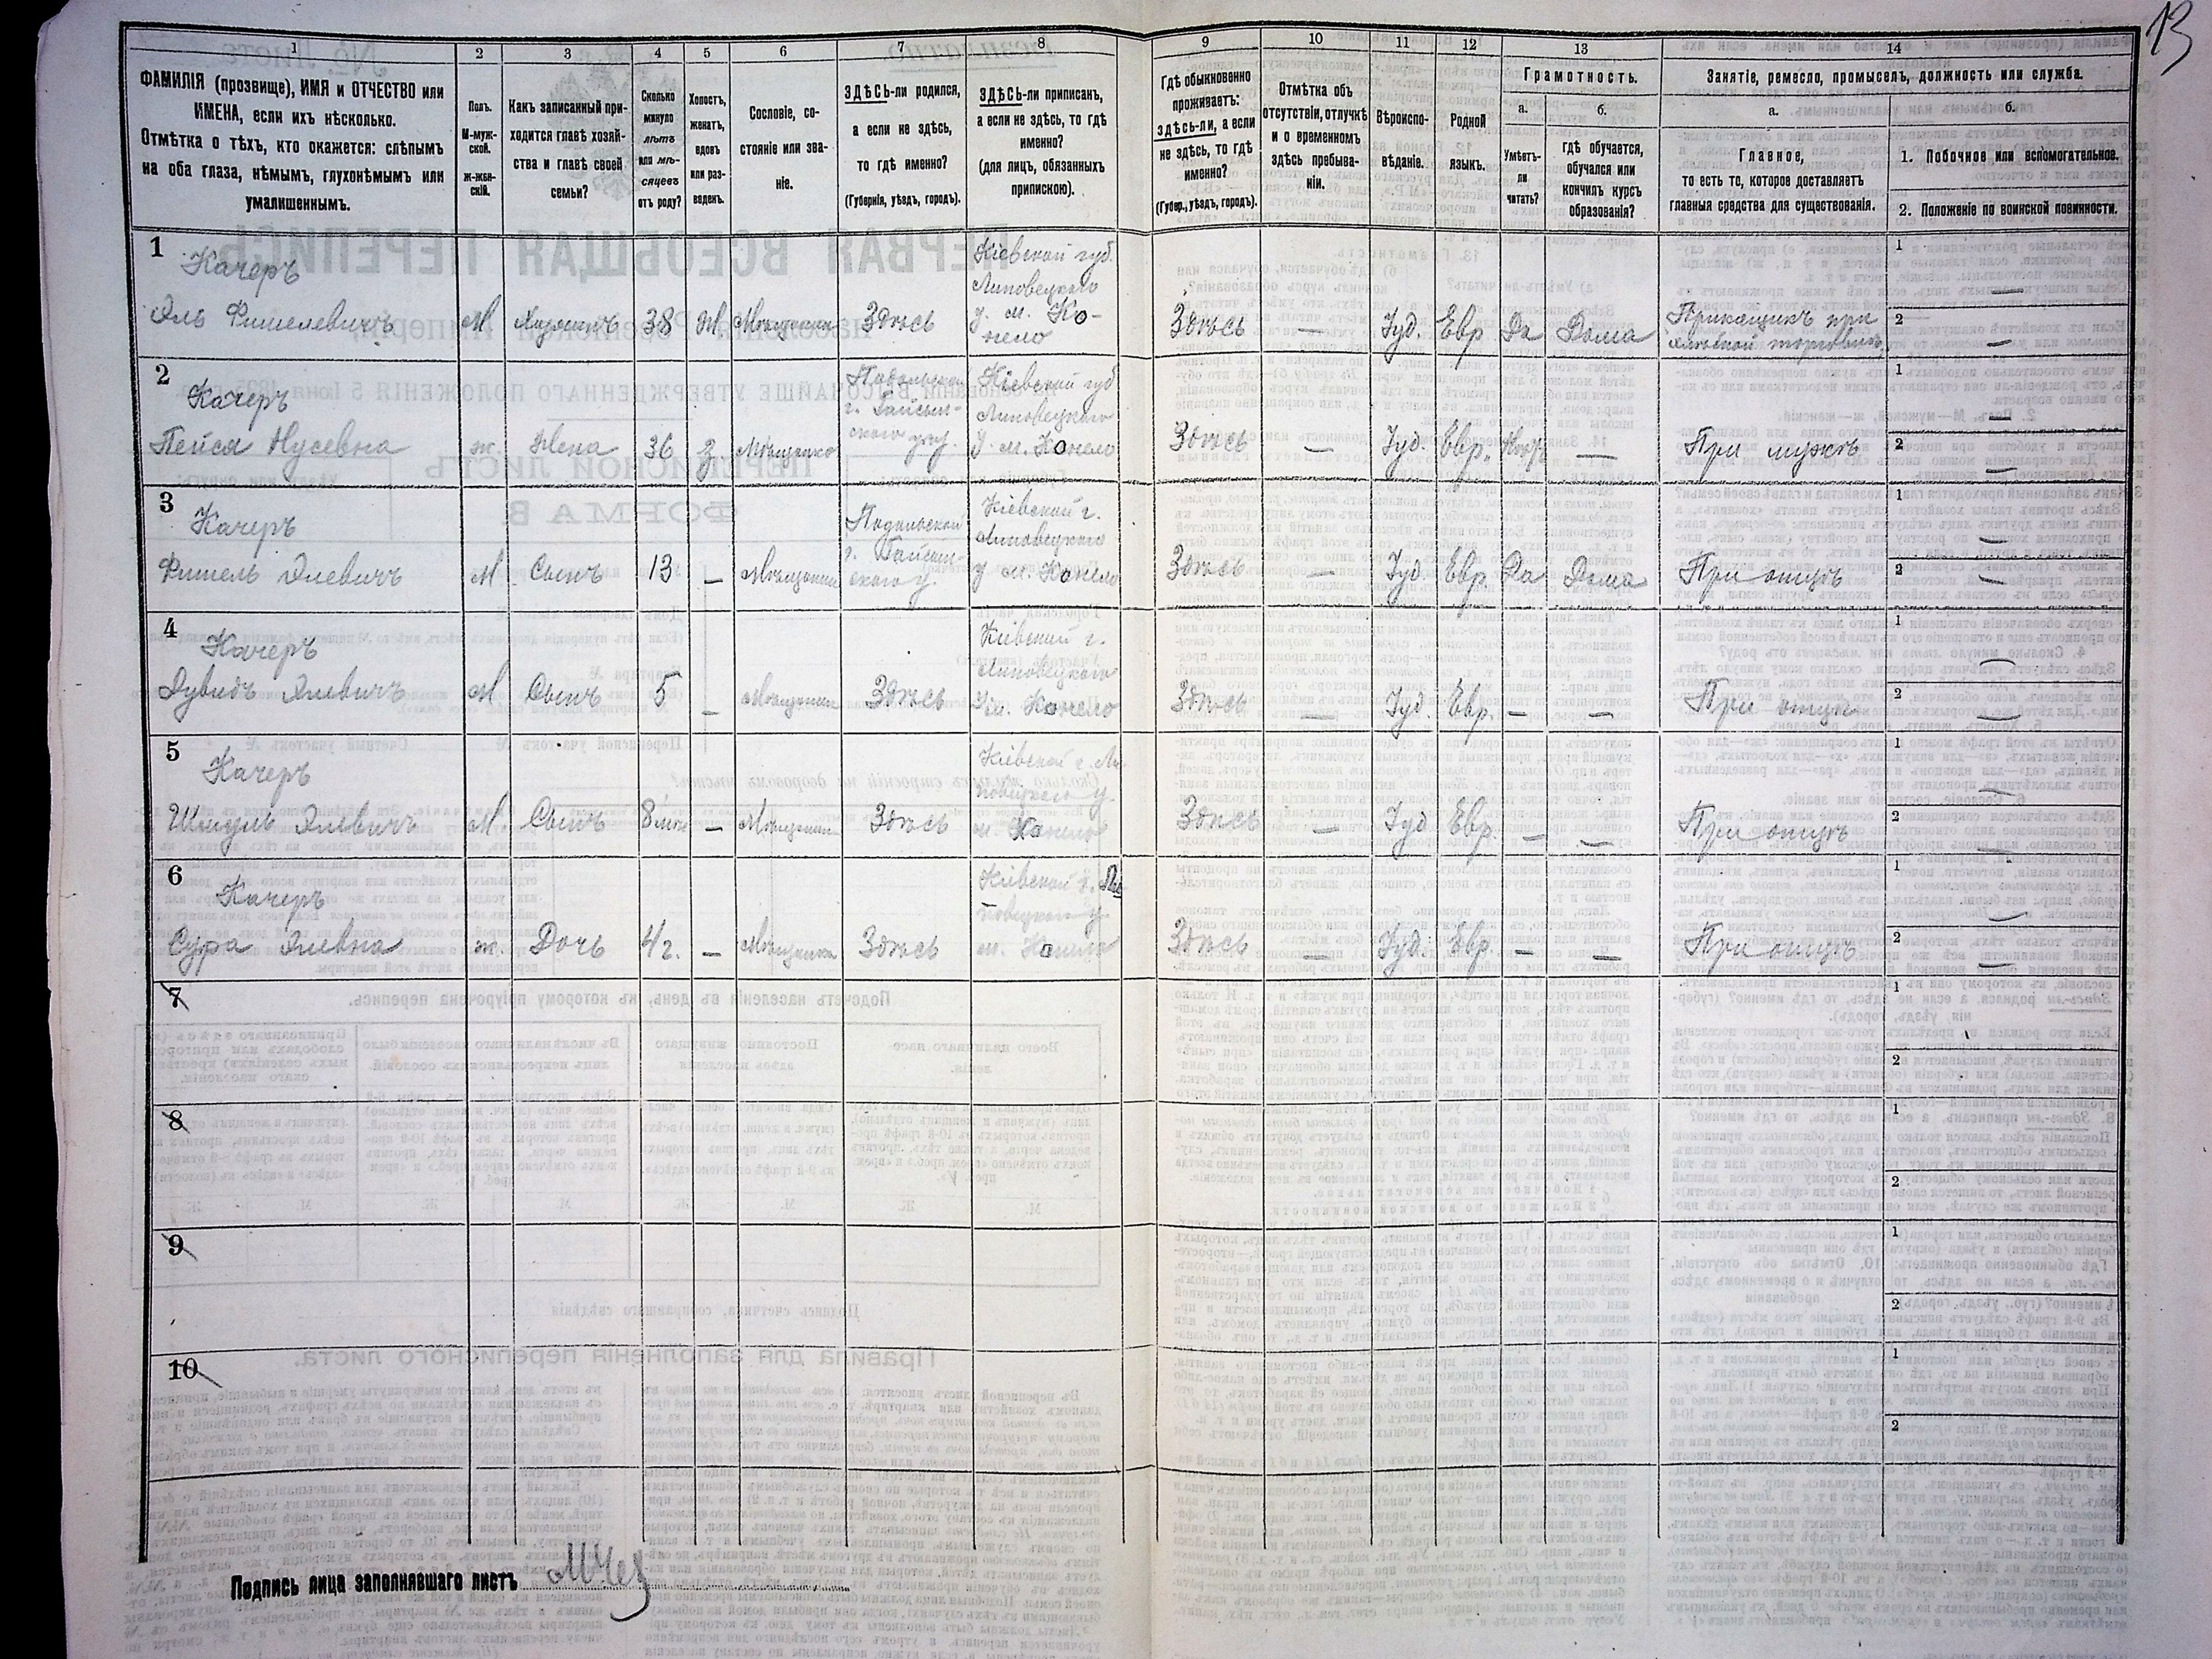 13
1
2
3
4
5
6
7
8
9
10
11
12
13
14
ФАМИЛІЯ (прозвище), ИМЯ и ОТЧЕСТВО или
ИМЕНА, если ихъ нѣсколько.
Отмѣтка о тѣхъ, кто окажется: слѣпымъ
на оба глаза, нѣмымъ, глухонѣмымъ или
умалишеннымъ.
Полъ.
М-муж-
ской.
ж-жен-
скій.
Какъ записанный при-
ходится главѣ хозяй-
ства и главѣ своей
семьи?
Сколько
минуло
лѣтъ
или мѣ-
сяцевъ
отъ роду?
Холостъ,
женатъ,
вдовъ
или раз-
веденъ.
Сословіе, со-
стояніе или зва-
ніе.
ЗДѢСЬ-ли родился,
а если не здѣсь,
то гдѣ именно?
(Губернія, уѣздъ, городъ).
ЗДѢСЬ-ли приписанъ,
а если не здѣсь, то гдѣ
именно?
(для лицъ, обязанныхъ
припискою).
Гдѣ обыкновенно
проживаетъ:
здѣсь-ли, а если
не здѣсь, то гдѣ
именно?
(Губер., уѣздъ, городъ).
Отмѣтка объ
отсутствіи, отлучкѣ
и о временномъ
здѣсь пребыва-
ніи.
Вѣроиспо-
вѣданіе.
Родной
языкъ.
Грамотность.
а.
Умѣетъ-
ли
читать?
б.
гдѣ обучается,
обучался или
кончилъ курсъ
образованія?
Занятіе, ремесло, промыселъ, должность или служба.
а.
Главное,
то есть то, которое доставляетъ
главныя средства для существованія.
б.
1. Побочное или вспомогательное.
2. Положеніе по воинской повинности.
1
Качеръ
Эль Фишелевичъ
М
Хозяинъ
38
Ж
Мѣщанинъ
Здѣсь
Кіевской губ.
Липовецкаго
у. м. Ко-
нело
Здѣсь
—
Іуд.
Евр
Да
Дома
Прикащикъ при
1
—
2
—
2
Качеръ
Пейся Нусевна
ж.
Жена
36
з.
Мѣщанка
Подольской
г. Гайсин-
скаго у.
Кіевской губ
Липовецкаго
у м. Конело
Здѣсь
—
Іуд.
Евр.
—
При мужѣ
1
—
2
—
3
Качеръ
Фишель Элевичъ
М
Сынъ
13
—
Мѣщанинъ
Подольской
г. Гайсин-
скаго у.
Кіевской г.
Липовецкаго
у м. Конело
Здѣсь
—
Іуд
Евр.
Да
Дома
При отцѣ
1
—
2
—
4
Качеръ
Дувидъ Элевичъ
М
Сынъ
5
—
Мѣщанинъ
Здѣсь
Кіевской г.
Липовецкаго
у м. Конело
Здѣсь
—
Іуд.
Евр.
—
—
При отцѣ
1
—
2
—
5
Качеръ
Шмуль Элевичъ
М.
Сынъ
8 мѣс
—
Мѣщанинъ
Здѣсь
Кіевской г. Ли-
повецкаго у.
м. Конело
Здѣсь
—
Іуд
Евр.
—
—
При отцѣ
1
—
2
—
6
Качеръ
Сура Элевна
ж.
Дочь
4 г.
—
Мѣщанка
Здѣсь
Кіевской г. Ли-
повецкаго у.
м. Конело
Здѣсь
—
Іуд.
Евр.
—
—
При отцѣ
1
—
2
—
7
1
2
8
1
2
9
1
2
10
1
2
Подпись лица заполнявшаго листъ